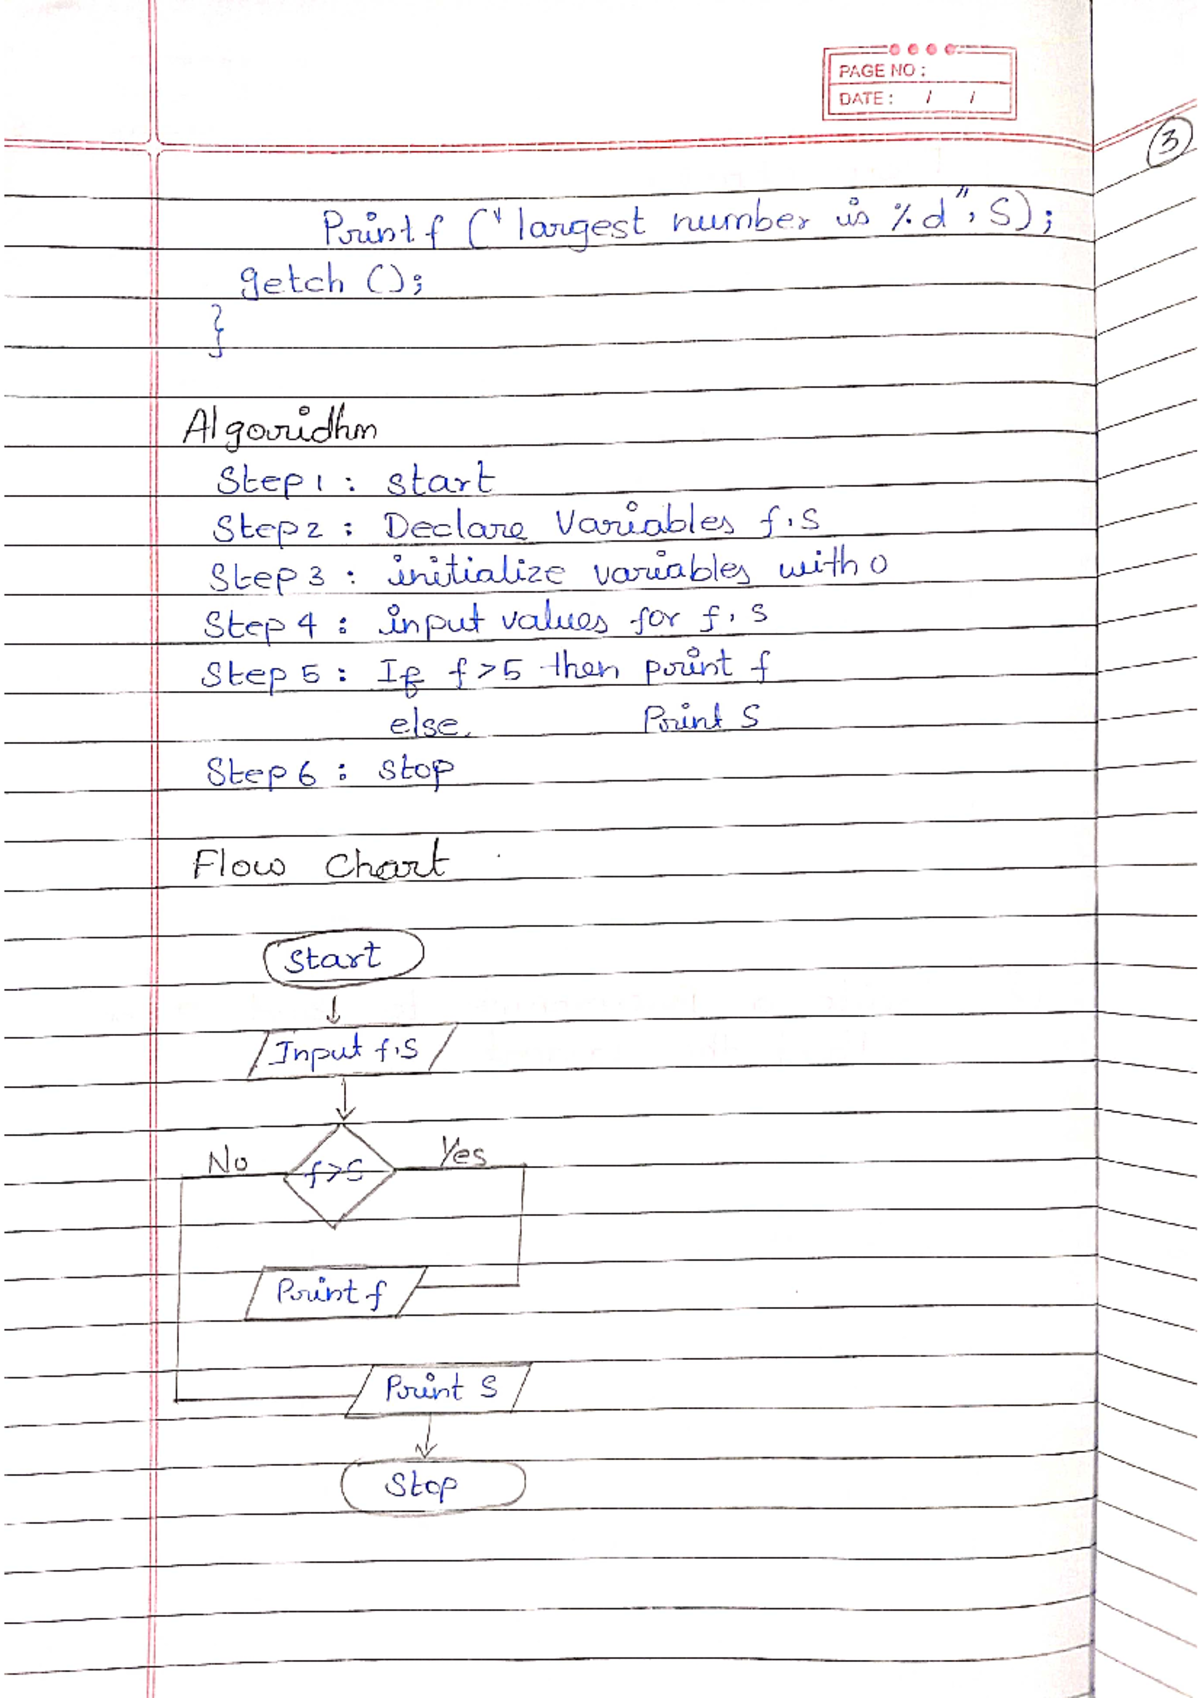 PAGE NO:
DATE: / /
3
Printf ("largest number is %d", S);
getch ();
}
Algoridhm
Step 1 : start
Step 2 : Declare Variables f, S
Step 3 : initialize variables with 0
Step 4 : input values for f, S
Step 5 : If f > 5 then print f
else Print S
Step 6 : stop
Flow Chart
Start
Input f, S
No f>S Yes
Print f
Print S
Stop